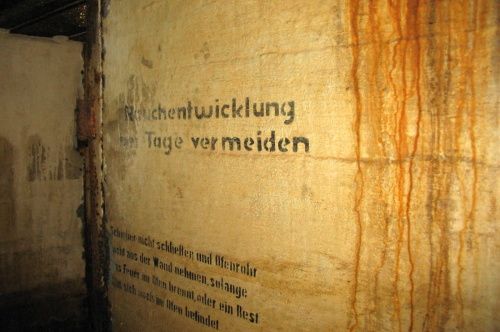 Rauchentwicklung
am Tage vermeiden
Schieber nicht schließen und Ofenrohr
nicht aus der Wand nehmen, solange
das Feuer im Ofen brennt, oder ein Rest
Glut sich noch im Ofen befindet